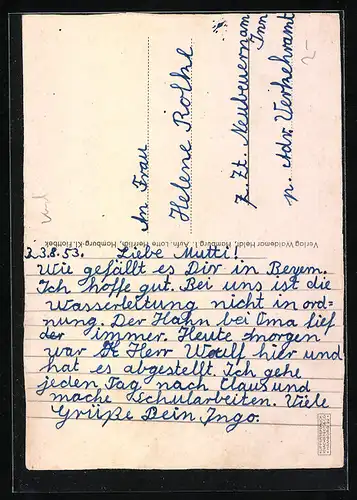 3.8.53. Liebe Mutti!
Wie gefällt es Dir in Beyern.
Ich hoffe gut. Bei uns ist die
Wasserleitung nicht in ord=
nung. Der Hahn bei Oma lief
der immer. Heute morgen
war Herr Waulf hier und
hat es abgestellt. Ich gehe
jeden Tag nach Claus und
mache Schularbeiten. Viele
Grüße Dein Ingo.
An Frau
Helene Rolke
z. Zt. Neubeuern am
Inn
p. Adr. Verkehramt
Verlag Waldemar Heldt, Hamburg 1, Aufn. Lotte Herrlich, Hamburg-Kl. Flottbek